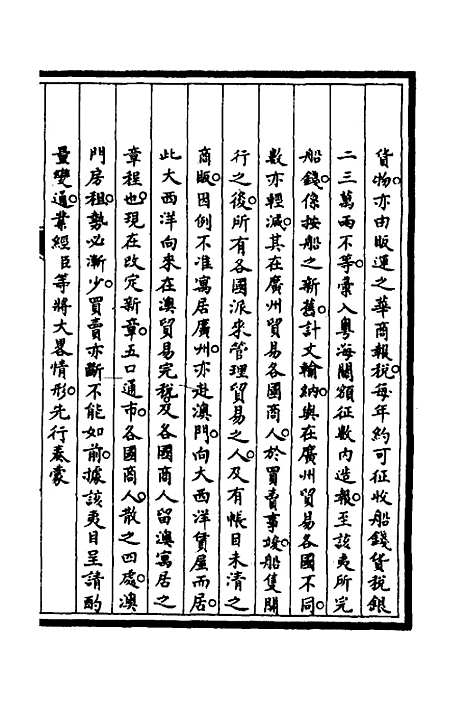 貨物亦由販運之華商報稅每年約可征收船錢貨稅銀
二三萬兩不等彙入粵海關額征數內造報至該夷所完
船錢係按船之新舊計丈輸納與在廣州貿易各國不同
數亦輕減其在廣州貿易各國商人於買賣事竣船隻開
行之後所有各國派來管理貿易之人及有帳目未清之
商販因例不准寓居廣州亦赴澳門向大西洋賃屋而居
此大西洋向來在澳貿易完稅及各國商人留澳寓居之
章程也現在改定新章五口通市各國商人散之四處澳
門房租勢必漸少買賣亦斷不能如前據該夷目呈請酌
量變通業經臣等將大畧情形先行奏蒙